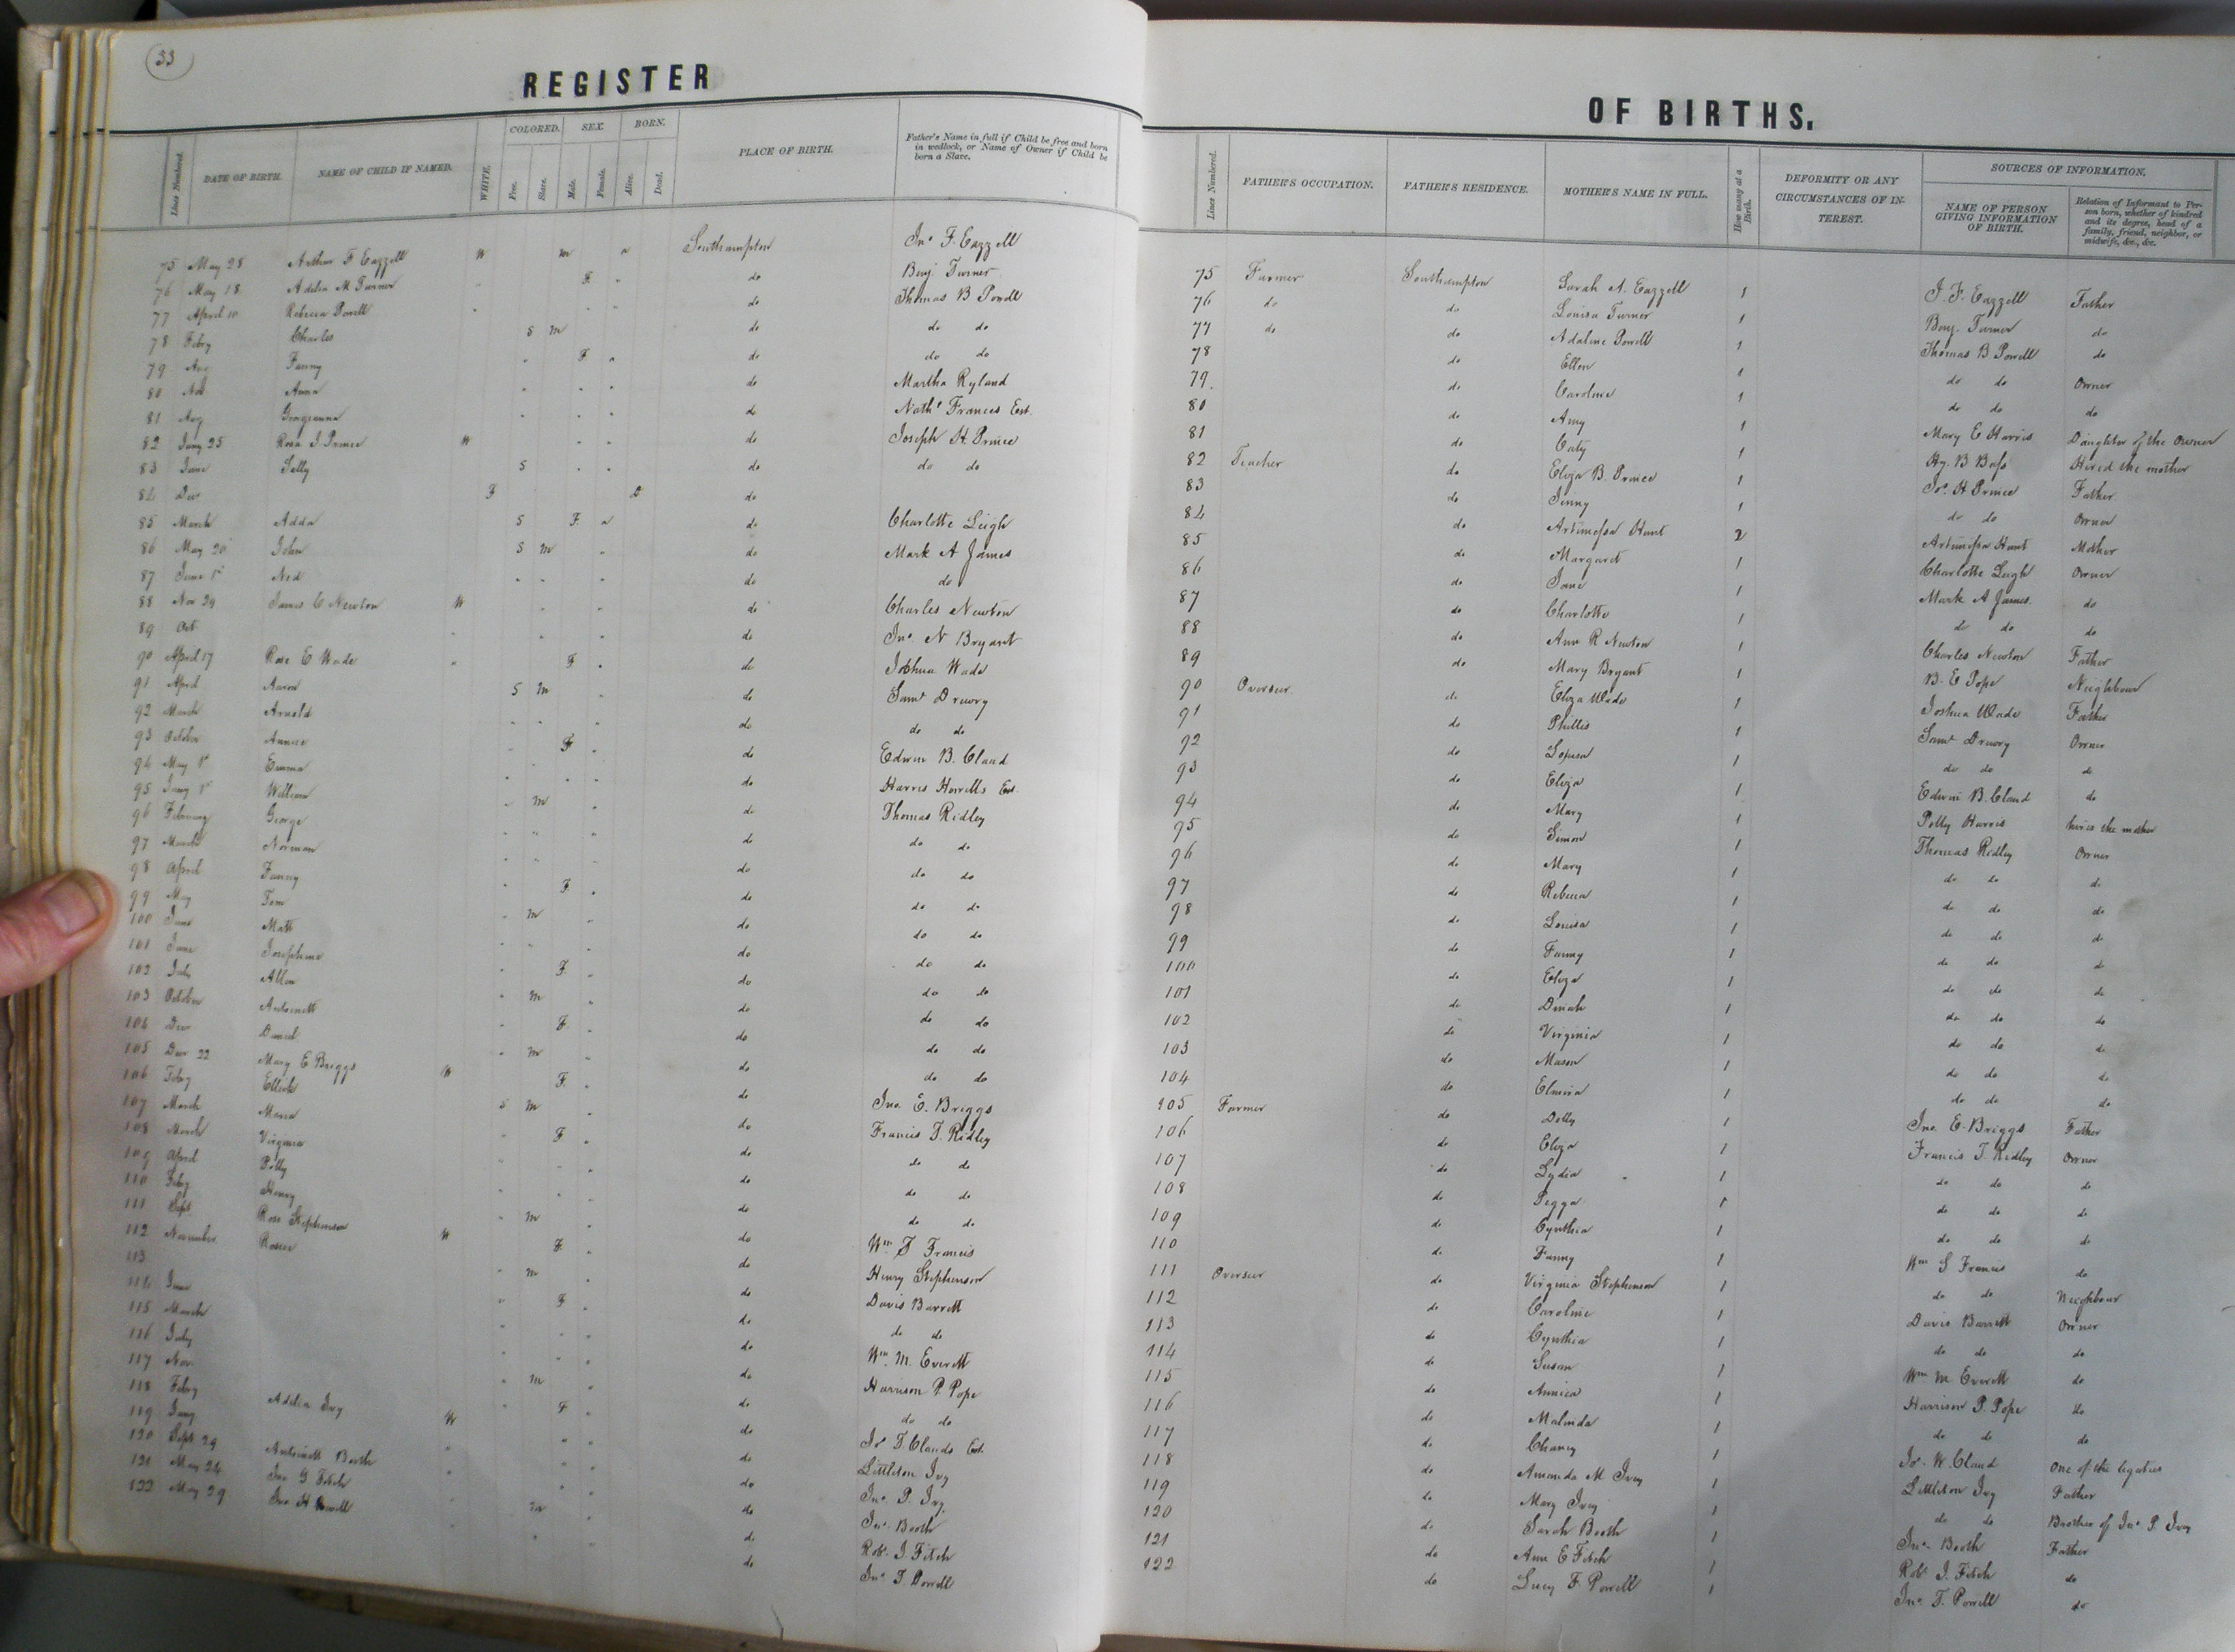 33
REGISTER
Lines Numbered. DATE OF BIRTH. NAME OF CHILD IF NAMED. WHITE. COLORED. Free. Slave. SEX. Male. Female. BORN. Alive. Dead. PLACE OF BIRTH. Father's Name in full if Child be free and born in wedlock, or Name of Owner if Child be born a Slave.
75 May 28 Arthur F Eazzell W m Southampton Jno F. Eazzell
76 May 18 Adelia M Turner F do Benj. Turner
77 April 10 Rebecca Powell do Thomas B Powell
78 Feby Charles S m do do do
79 Aug Fanny F do do do
80 Anna do Martha Ryland
81 Aug Georgeanna do Nathl Frances Est.
82 Jany 25 Rosa J. Prince W do Joseph H. Prince
83 June Sally S do do do
84 Dec F D do
85 March Adda S F do Charlotte Leigh
86 May 20 John S m do Mark A James
87 June 1st Ned do do
88 Nov 29 James C Newton W do Charles Newton
89 Oct do Jno. N Bryant
90 April 17 Rose E Wade F do Joshua Wade
91 April Aaron S m do Saml Drewry
92 March Arnold do do do
93 October Annice F do Edwin B. Claud
94 May 1st Emma do Harris Howells Est.
95 Jany 1st William m do Thomas Ridley
96 February George do do do
97 March Norman do do do
98 April Fanny F. do do do
99 May Tom m do do do
100 June Matt do do do
101 June Josephine F. do do do
102 July Allen m do do do
103 October Antoinett F. do do do
104 Dec Daniel m do do do
105 Dec 22 Mary E Briggs W F. do Jno. E. Briggs
106 Feby Ellick S m do Francis T. Ridley
107 March Maria F do do do
108 March Virginia do do do
109 April Polly do do do
110 Feby Henry m do Wm S Francis
111 Sept Rose Stephenson W F. do Henry Stephenson
112 November m do Davis Barrett
113 F do do do
114 June do Wm. M. Everett
115 March do Harrison P. Pope
116 July m do do do
117 Nov F do Js. T. Clauds Est.
118 Feby Adelia Ivy W do Littleton Ivy
119 Jany do Jno. P. Ivy
120 Sept 29 Antoinett Booth do Jno. Booth
121 May 24 Jno G Fitch m do Robt. J. Fitch
122 May 29 Jno H Powell do Jno. T. Powell
OF BIRTHS.
Lines Numbered. FATHER'S OCCUPATION. FATHER'S RESIDENCE. MOTHER'S NAME IN FULL. How many at a Birth. DEFORMITY OR ANY CIRCUMSTANCES OF INTEREST. SOURCES OF INFORMATION. NAME OF PERSON GIVING INFORMATION OF BIRTH. Relation of Informant to Person born, whether of kindred and its degree, head of a family, friend, neighbor, or midwife, &c., &c.
75 Farmer Southampton Sarah A. Eazzell 1 J. F. Eazzell Father
76 do do Louisa Turner 1 Benj. Turner do
77 do do Adaline Powell 1 Thomas B Powell do
78 do Ellen 1 do do Owner
79. do Caroline 1 do do do
80 do Amy 1 Mary E Harris Daughter of the Owner
81 do Caty 1 Hy. B Bass Hired the mother
82 Teacher do Eliza B. Prince 1 Js. H Prince Father
83 do Jenny 1 do do Owner
84 do Artimessa Hunt 2 Artimessa Hunt Mother
85 do Margaret 1 Charlotte Leigh Owner
86 do Jane 1 Mark A James. do
87 do Charlotte 1 do do do
88 do Ann R Newton 1 Charles Newton Father
89 do Mary Bryant 1 B. E Pope Neighbour
90 Overseer do Eliza Wade 1 Joshua Wade Father
91 do Phillis 1 Saml Drewry Owner
92 do 1 do do do
93 do Eliza 1 Edwin B. Claud do
94 do Mary 1 Polly Harris hires the mother
95 do Simon 1 Thomas Ridley Owner
96 do Mary 1 do do do
97 do Rebecca 1 do do do
98 do Louisa 1 do do do
99 do Fanny 1 do do do
100 do Eliza 1 do do do
101 do Dinah 1 do do do
102 do Virginia 1 do do do
103 do Mason 1 do do do
104 do Elmira 1 do do do
105 Farmer do Dolly 1 Jno. E. Briggs Father
106 do Eliza 1 Francis T. Ridley Owner
107 do Lydia 1 do do do
108 do Pegga 1 do do do
109 do Cynthia 1 do do do
110 do Fanny 1 Wm S Francis do
111 Overseer do Virginia Stephenson 1 do do Neighbour
112 do Caroline 1 Davis Barrett Owner
113 do Cynthia 1 do do do
114 do Susan 1 Wm M. Everett do
115 do Annica 1 Harrison P. Pope do
116 do Malinda 1 do do do
117 do Chancy 1 Js. W. Claud One of the legatees
118 do Amanda M Ivey 1 Littleton Ivy Father
119 do Mary Ivey 1 do do Brother of Jno. P. Ivy
120 do Sarah Booth 1 Jno. Booth Father
121 do Ann E Fitch 1 Robt. J. Fitch do
122 do Lucy F. Powell 1 Jno. T. Powell do